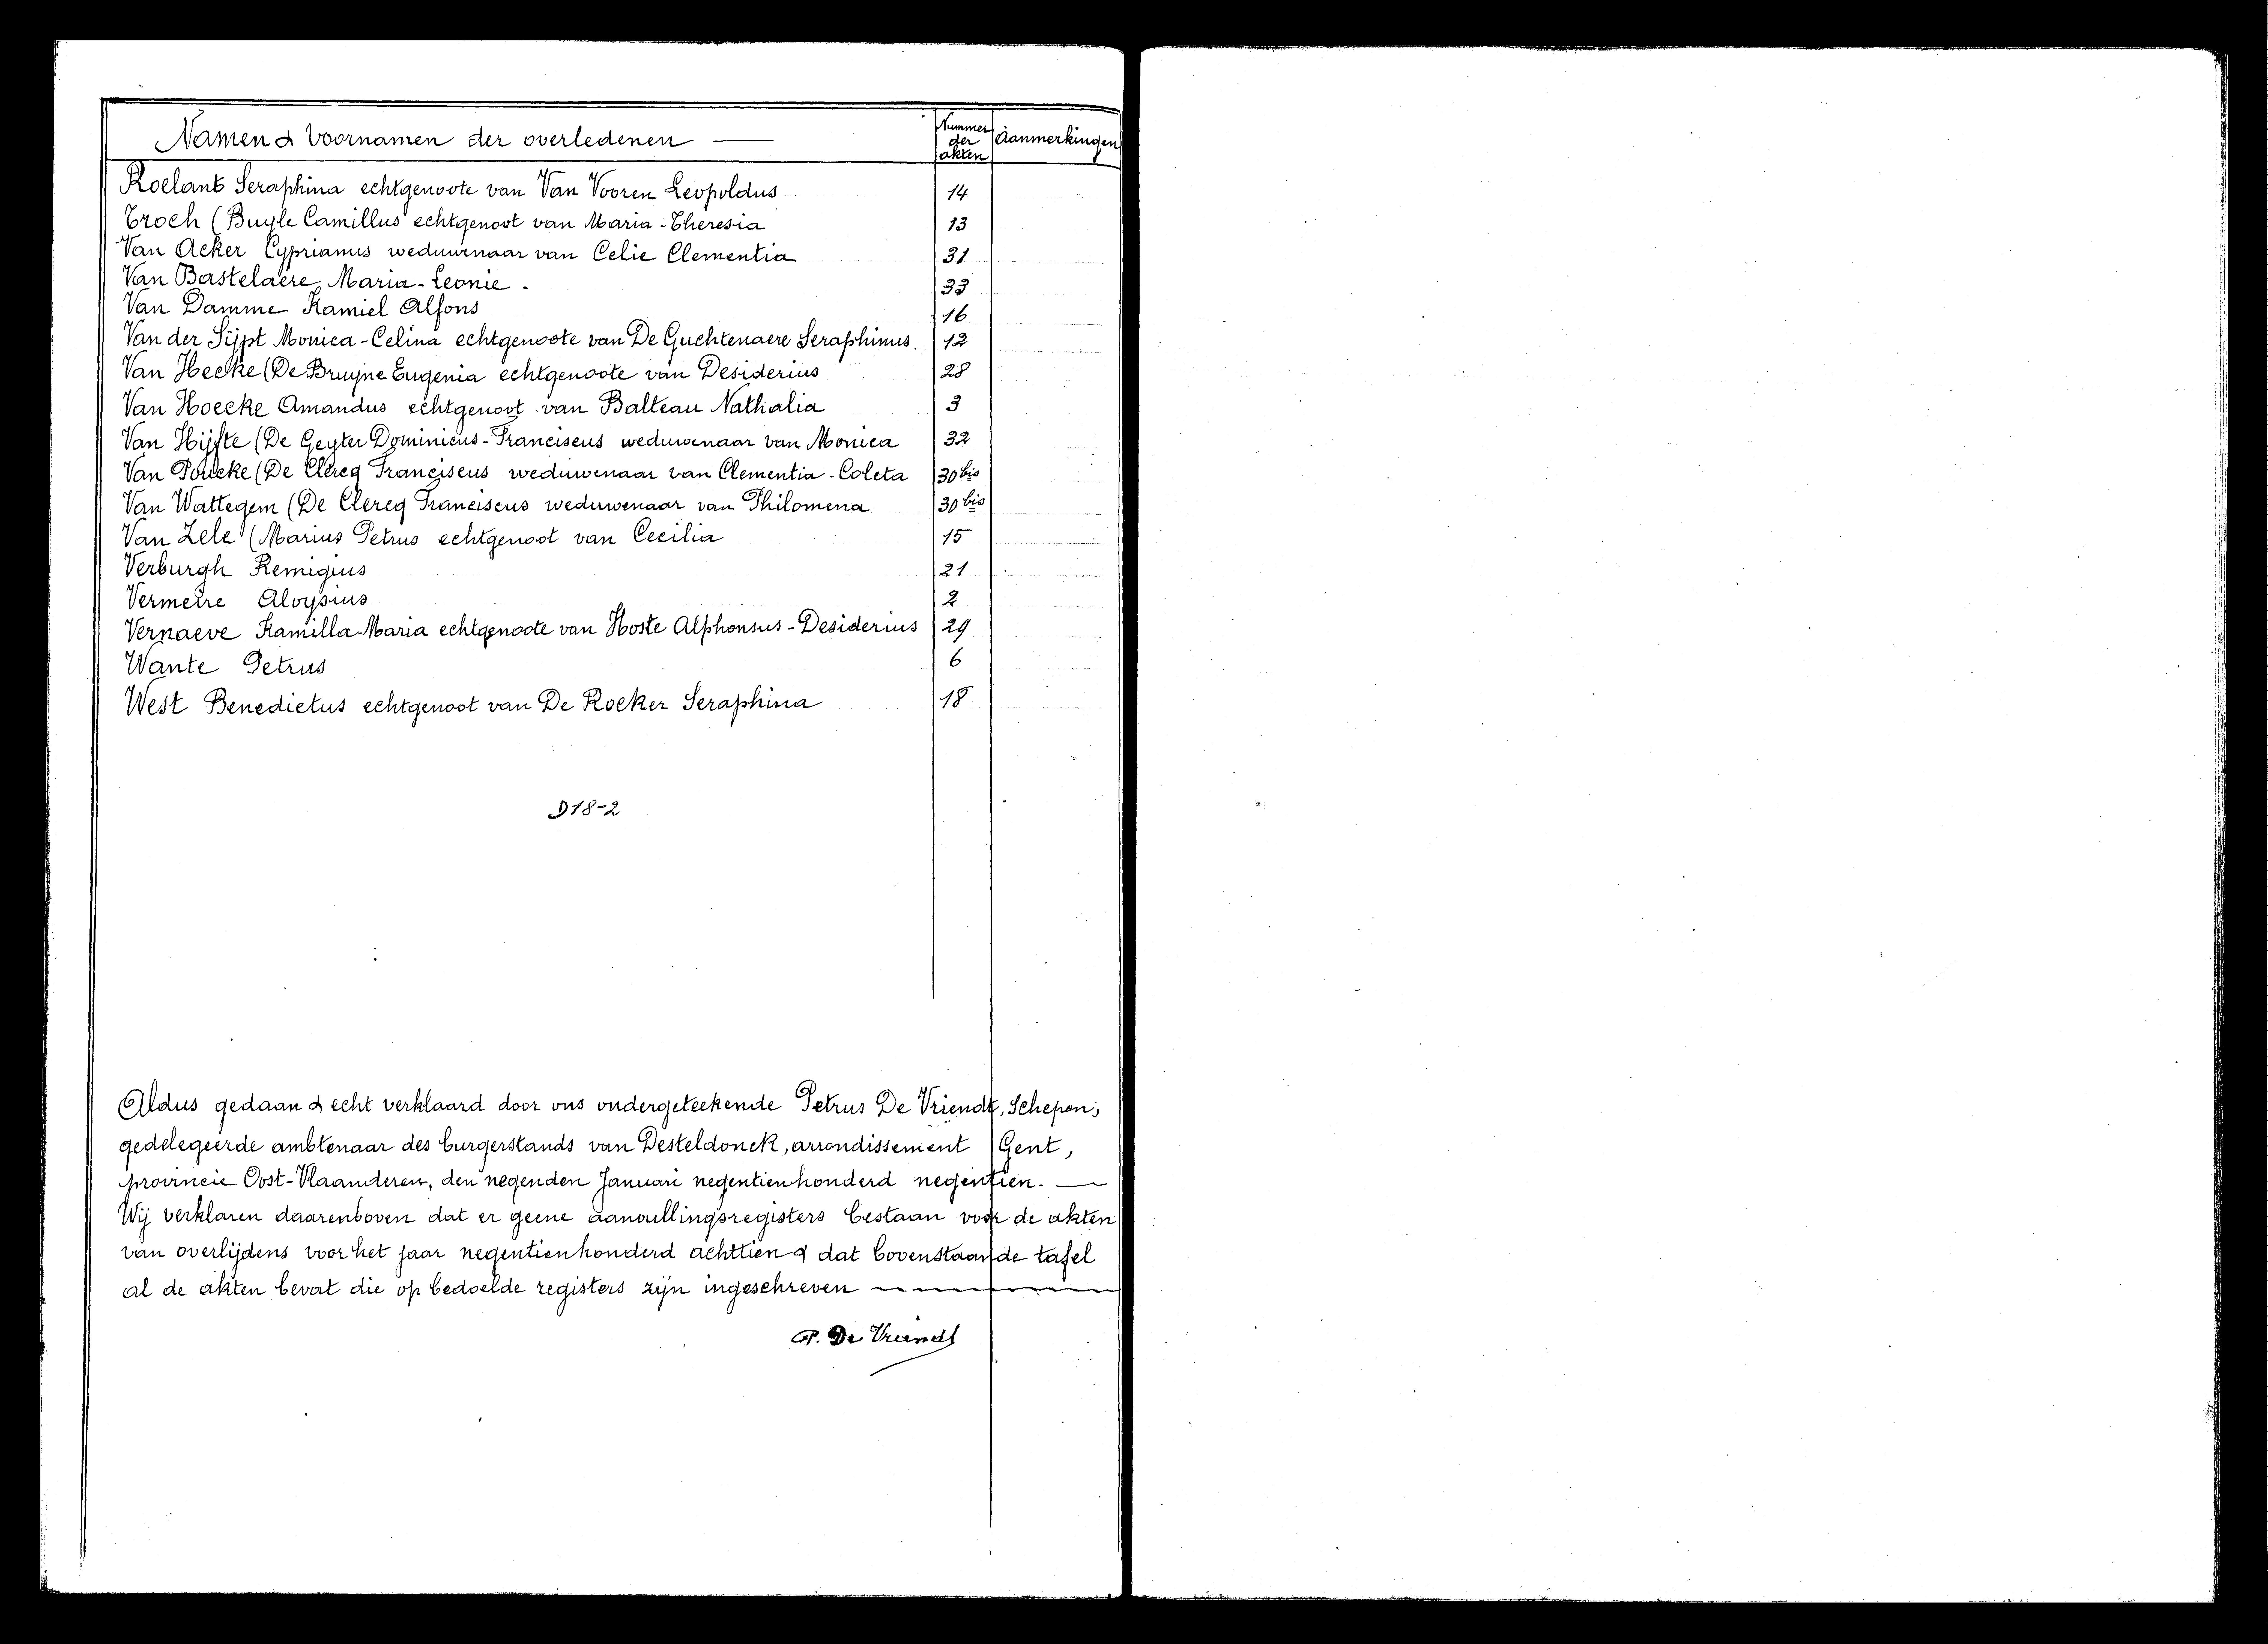 Namen & Voornamen der overledenen — Nummer der akten Aanmerkingen
Roelant Seraphina echtgenoote van Van Vooren Leopoldus 14
Troch (Buyle Camillus echtgenoot van Maria-Theresia 13
Van Acker Cyprianus weduwnaar van Celie Clementia 31
Van Bastelaere Maria-Leonie. 33
Van Damme Kamiel Alfons 16
Van der Sijpt Monica-Celina echtgenoote van De Guchtenaere Seraphinus. 12
Van Hecke (De Bruyne Eugenia echtgenoote van Desiderius 28
Van Hoecke Amandus echtgenoot van Balteau Nathalia 3
Van Hijfte (De Geyter Dominicus-Franciscus weduwenaar van Monica 32
Van Poucke (De Clercq Franciscus weduwenaar van Clementia-Coleta 30 bis
Van Wattegem (De Clercq Franciscus weduwenaar van Philomena 30 bis
Van Zele (Marius Petrus echtgenoot van Cecilia 15
Verburgh Remigius 21
Vermeire Aloysius 2
Vernaeve Kamilla-Maria echtgenoote van Hoste Alphonsus-Desiderius 29
Wante Petrus 6
West Benedictus echtgenoot van De Roeker Seraphina 18
D18-2
Aldus gedaan & echt verklaard door ons ondergeteekende Petrus De Vriendt, Schepen,
gedelegeerde ambtenaar des burgerstands van Desteldonck, arrondissement Gent,
provincie Oost-Vlaanderen, den negenden Januari negentienhonderd negentien. —
Wij verklaren daarenboven dat er geene aanvullingsregisters bestaan voor de akten
van overlijdens voor het jaar negentienhonderd achttien & dat bovenstaande tafel
al de akten bevat die op bedoelde registers zijn ingeschreven —
P. De Vriendt